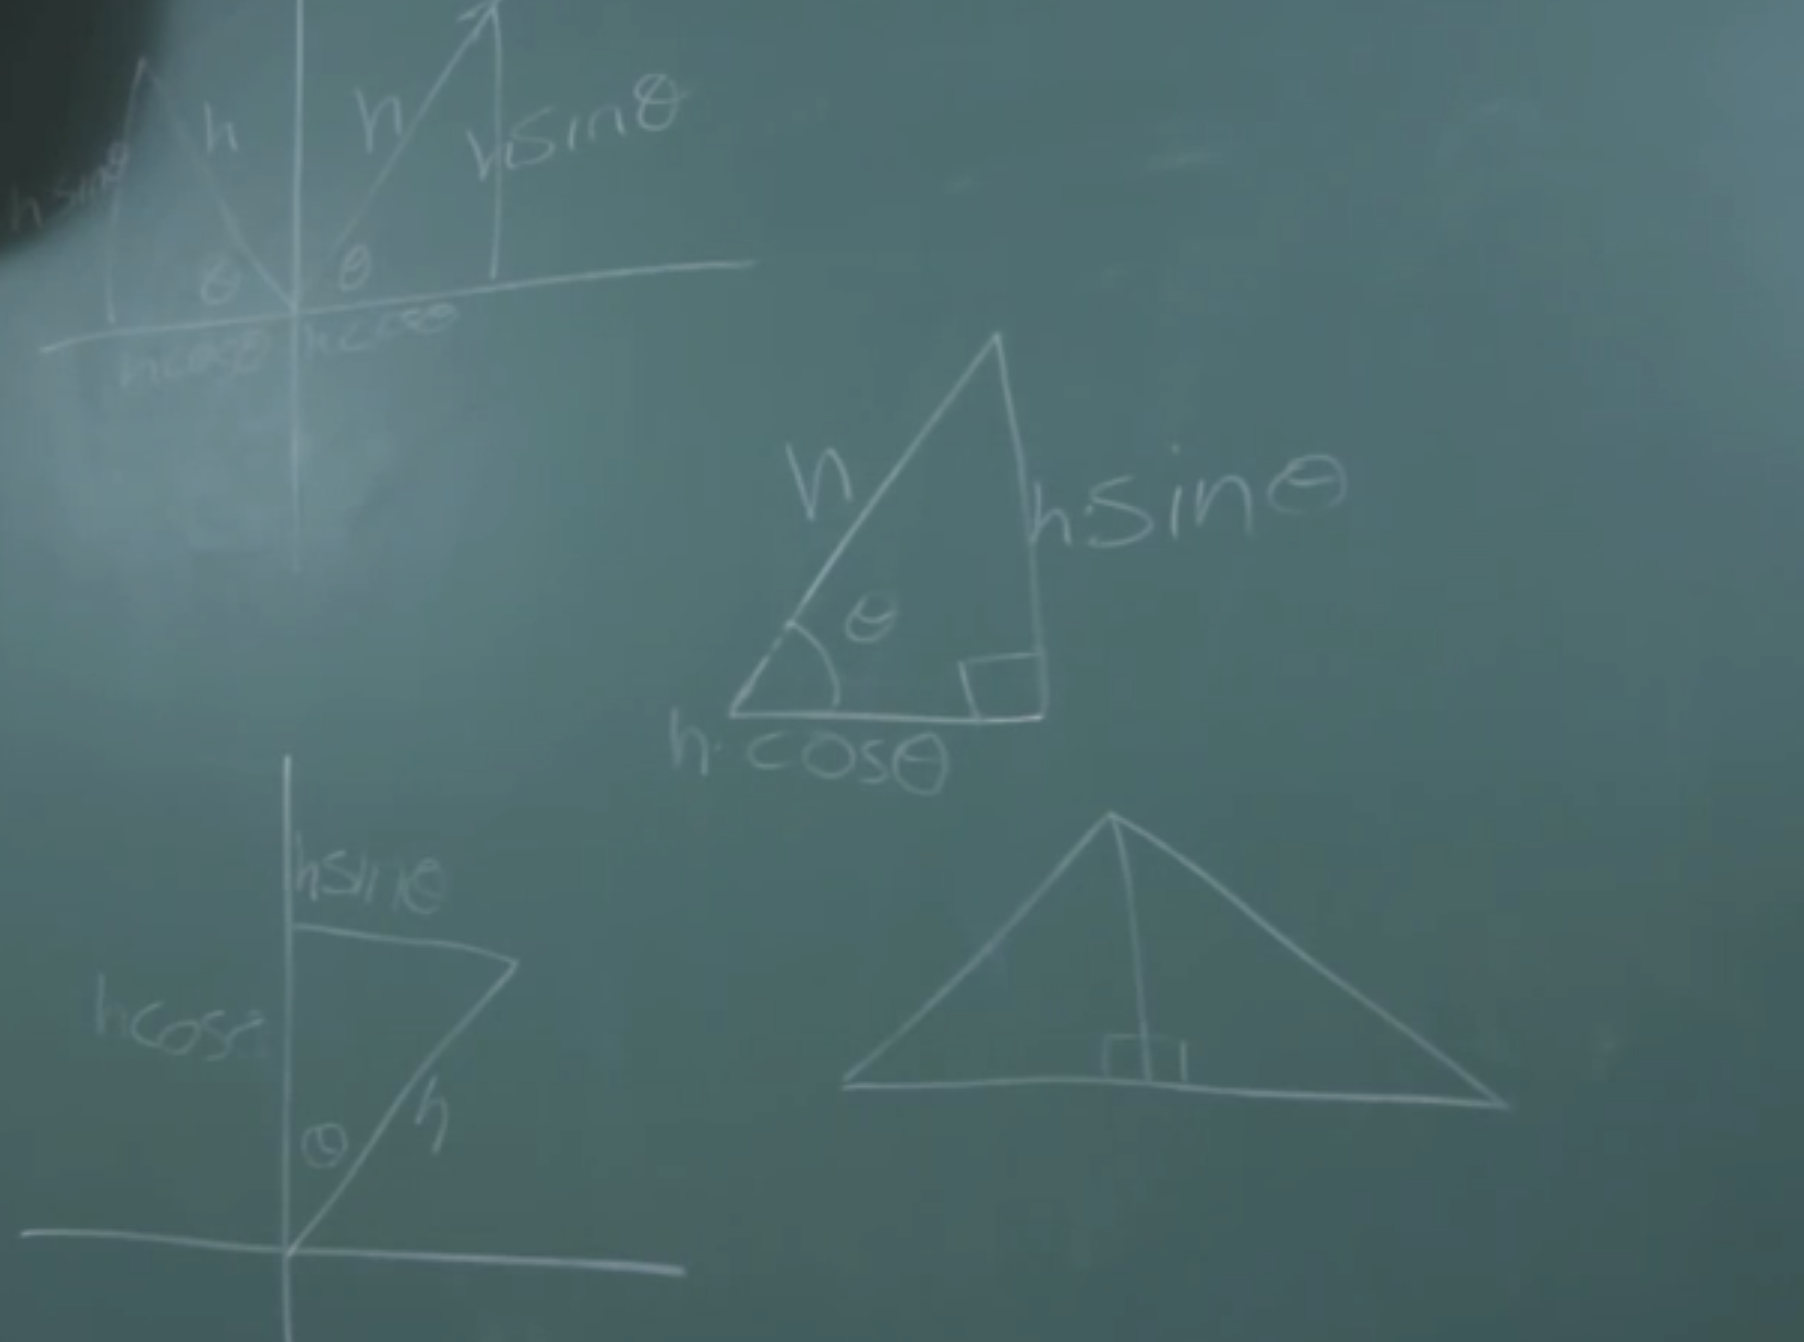 h
h
hsinθ
h sinθ
θ
θ
hcosθ
hcosθ
h
h·sinθ
θ
h·cosθ
hsinθ
hcosθ
h
θ